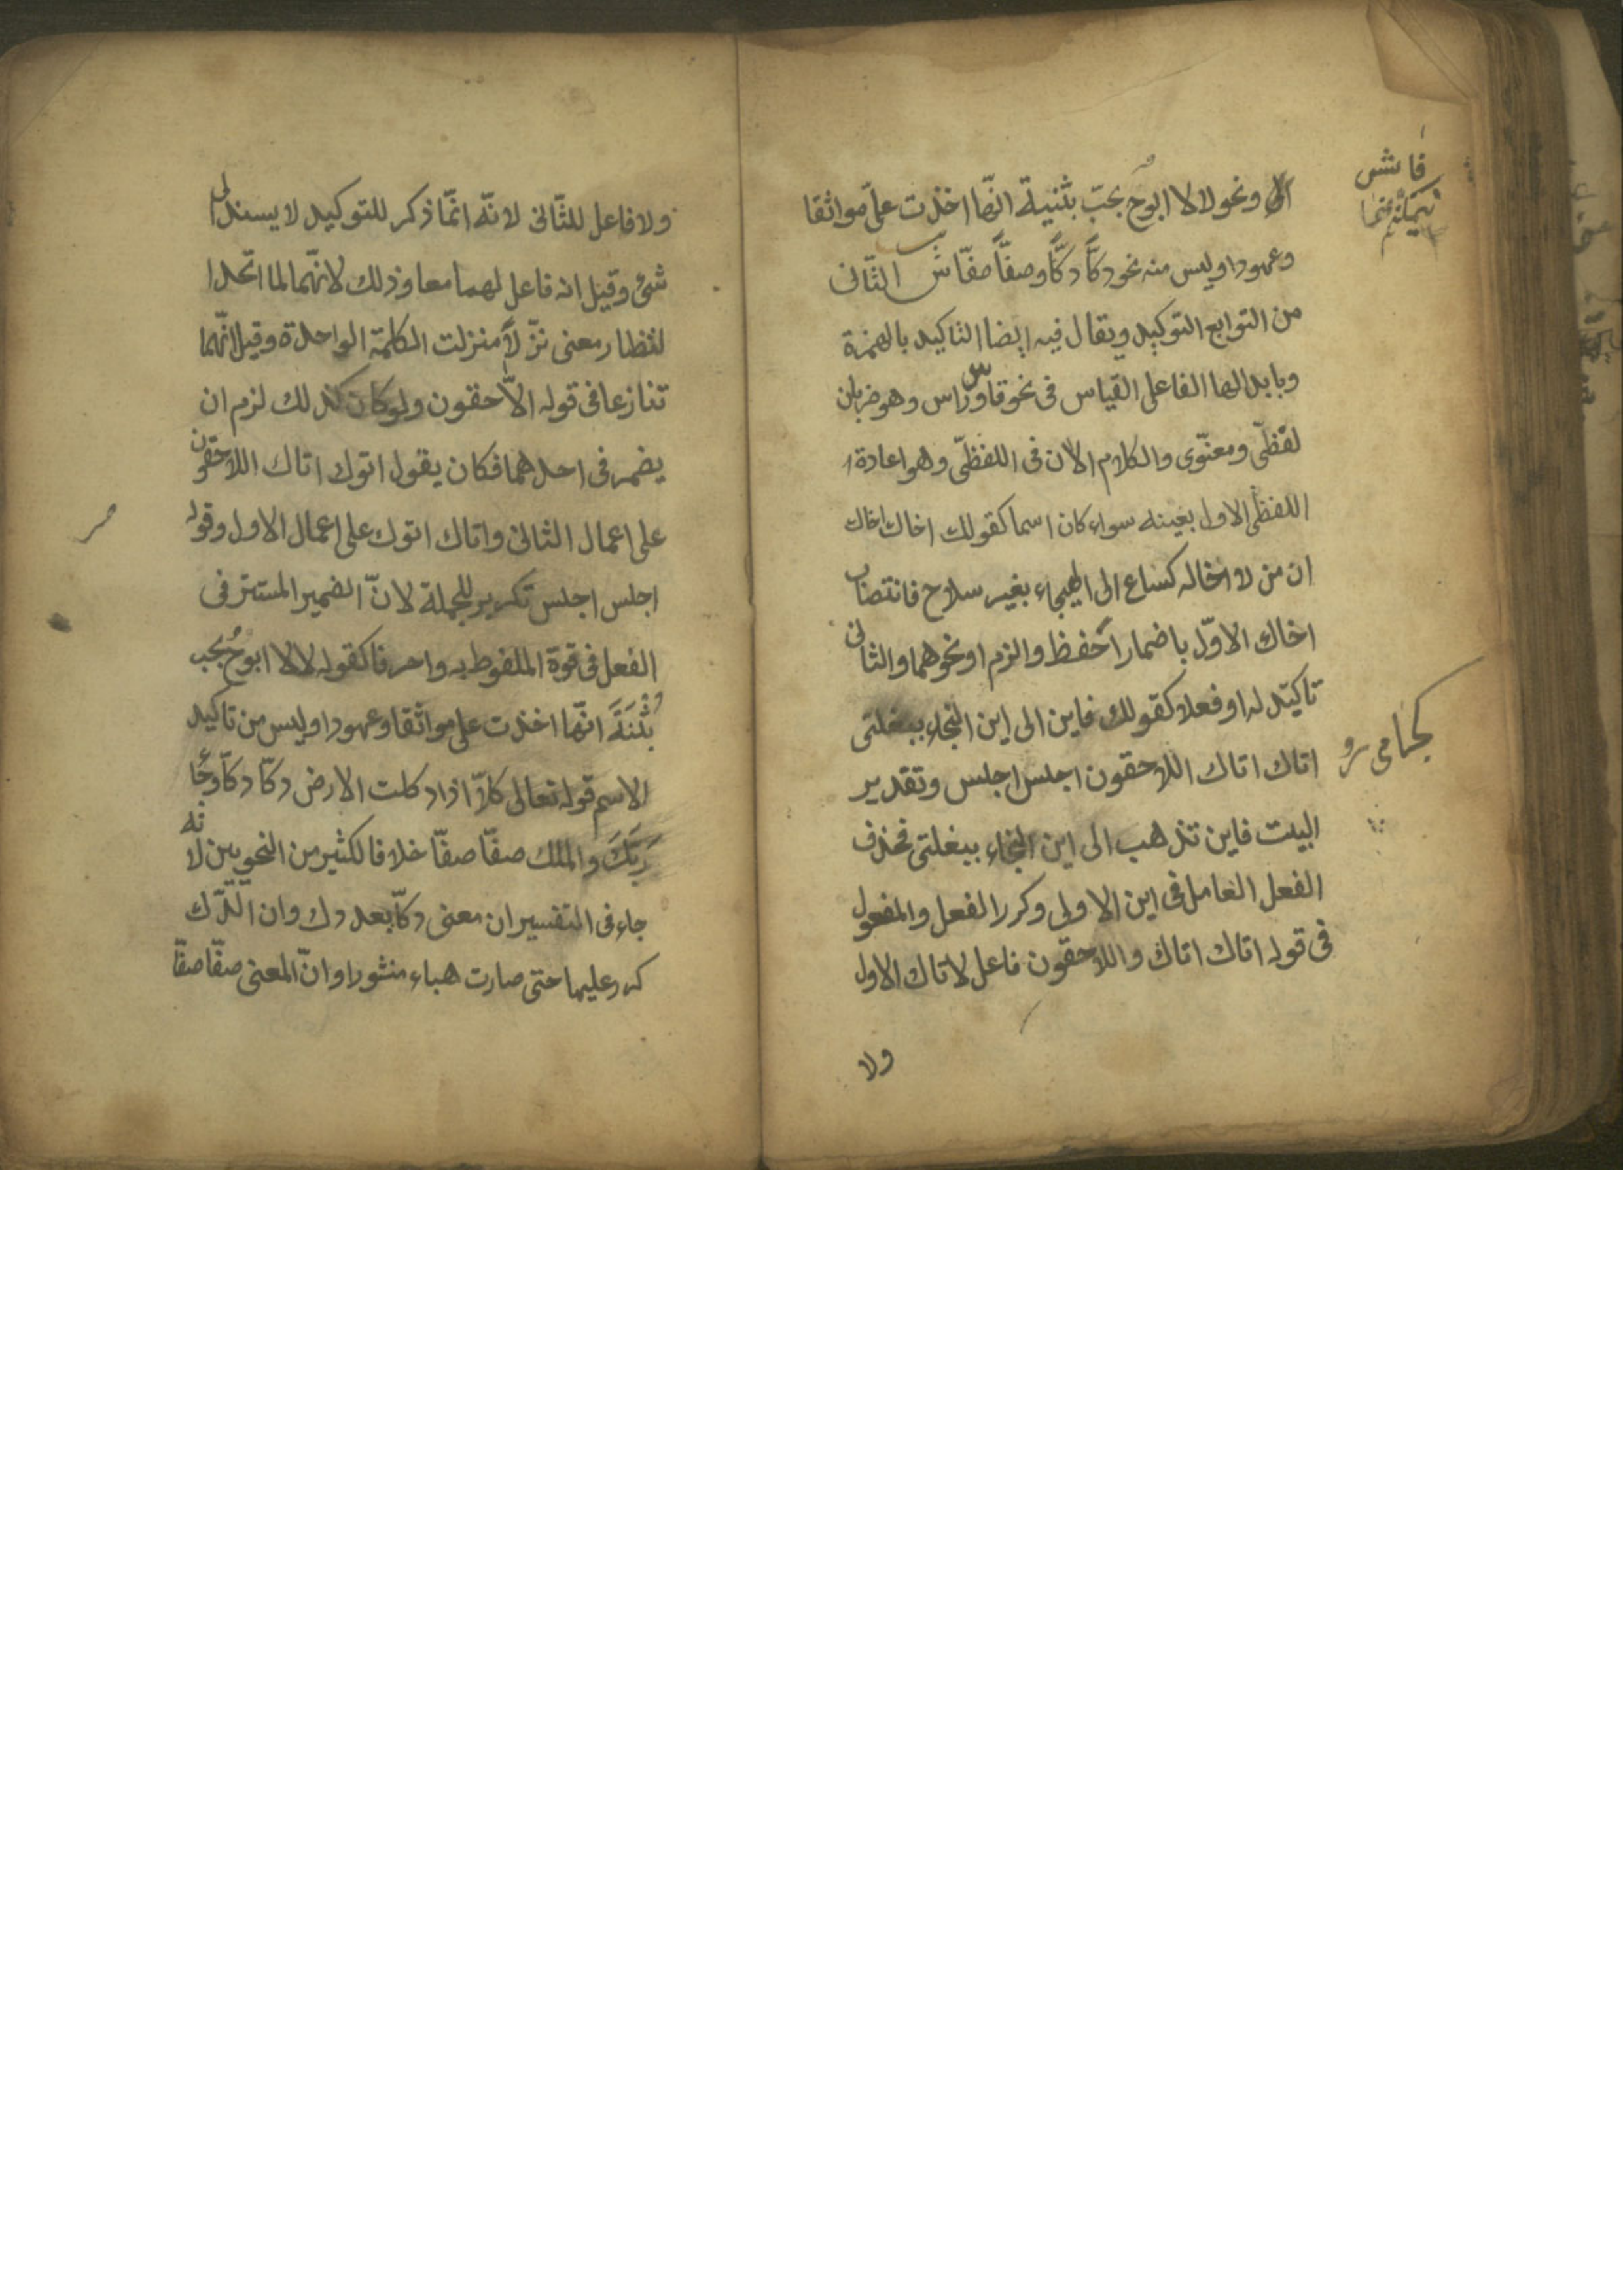 ونحو لا لا ابوحُ بحبّ بثنية انّها اخذت علىّ مواثقا
وعهودا وليس منه نحو دكًّا دكًّا وصفًّا صفًّا ش الثّانى
من التوابع التوكيد ويقال فيه ايضا التاكيد بالهمزة
وبابدالها الفا على القياس فى نحو فاس وراس وهو ضربان
لفظىّ ومعنوّى والكلام الان فى اللفظىّ وهو اعادة
اللفظ الاول بعينه سواء كان اسما كقولك اخاك اخاك
ان من لا اخاله كساع الى الهيجاء بغير سلاح فانتصاب
اخاك الاوّل باضمار احفظ والزم او نحوهما والثانى
تاكيد له او فعلا كقولك فاين الى اين النجاء ببغلتى
اتاك اتاك اللاحقون اجلس اجلس وتقدير
البيت فاين تذهب الى اين النجاء ببغلتى فحذف
الفعل العامل فى اين الاولى وكرر الفعل والمفعول
فى قوله اتاك اتاك واللاحقون فاعل لاتاك الاول
ولا
كجا مى رو
ولا فاعل للثّانى لانّه انّما ذكر للتوكيد لا يسند الى
شئ وقيل انه فاعل لهما معا وذلك لانّهما لما اتحدا
لفظا ومعنى نزّلا منزلت الكلمة الواحدة وقيل انّهما
تنازعا فى قوله الاّحقون ولو كان كذلك لزم ان
يضمر فى احدهما فكان يقول اتوك اتاك اللاحقون
على اعمال الثانى واتاك اتوك على اعمال الاول وقوله
اجلس اجلس تكرير للجملة لانّ الضمير المستتر فى
الفعل فى قوة الملفوظ به وا حرفا كقوله لا لا ابوحُ بحب
بثنَةَ انّها اخذت على مواثقا وعهودا وليس من تاكيد
الاسم قوله تعالى كلاّ اذا دكت الارض دكّا دكّا وجا
رَبّكَ والملك صفّا صفّا خلافا لكثير من النحويين لانه
جاء فى التفسير ان معنى دكّا بعد دك وان الدّك
كرر عليها حتى صارت هباء منثورا وانّ المعنى صفّا صفّا